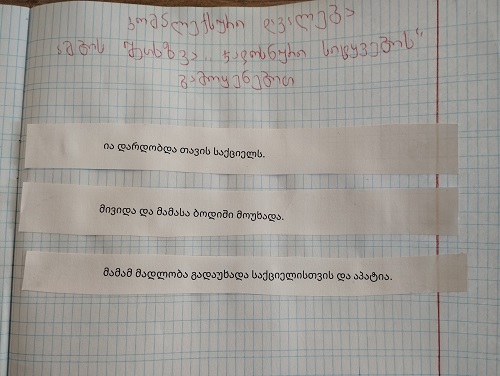 კომპლექსური დავალება
ამბის სიტყვების"
გამოყენებით
ია დარდობდა თავის საქციელს.
მივიდა და მამასა ბოდიში მოუხადა.
მამამ მადლობა გადაუხადა საქციელისთვის და აპატია.